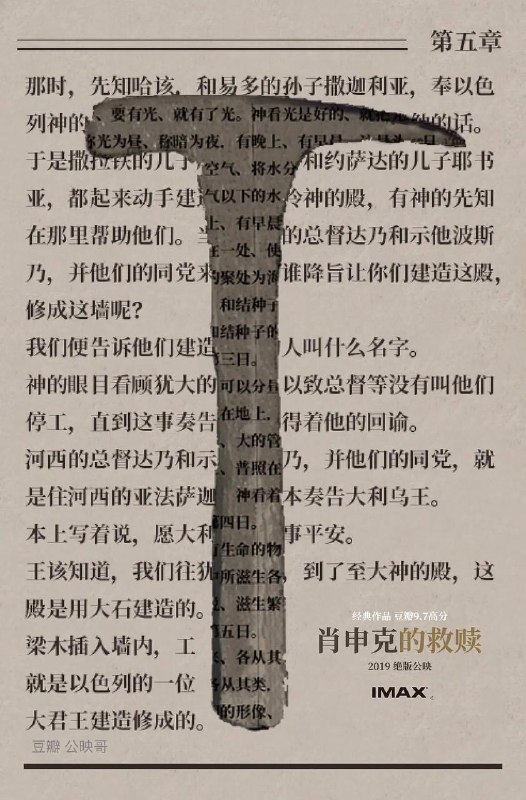 第五章
那时，先知哈该，和易多的孙子撒迦利亚，奉以色
列神的 的话。
于是撒拉铁的儿子 和约萨达的儿子耶书
亚，都起来动手建造 冷神的殿，有神的先知
在那里帮助他们。当 的总督达乃和示他波斯
乃，并他们的同党来 谁降旨让你们建造这殿，
修成这墙呢？
我们便告诉他们建造 人叫什么名字。
神的眼目看顾犹大的 以致总督等没有叫他们
停工，直到这事奏告 得着他的回谕。
河西的总督达乃和示 乃，并他们的同党，就
是住河西的亚法萨迦 本奏告大利乌王。
本上写着说，愿大利 事平安。
王该知道，我们往犹 ，到了至大神的殿，这
殿是用大石建造的。
梁木插入墙内，工
就是以色列的一位
大君王建造修成的。
、要有光、就有了光。神看光是好的、就
光为昼、称暗为夜．有晚上、有早晨
空气、将水分
气以下的水
上、有早晨
在一处、使
的聚处为海
和结种子
和结种子的
第三日。
可以分昼
在地上．
、大的管
、普照在
神看着
第四日。
有生命的物
中所滋生各
、滋生繁
第五日。
、各从其
各从其类．
的形像、
经典作品 豆瓣9.7高分
肖申克的救赎
2019 绝版公映
IMAX
豆瓣 公映哥